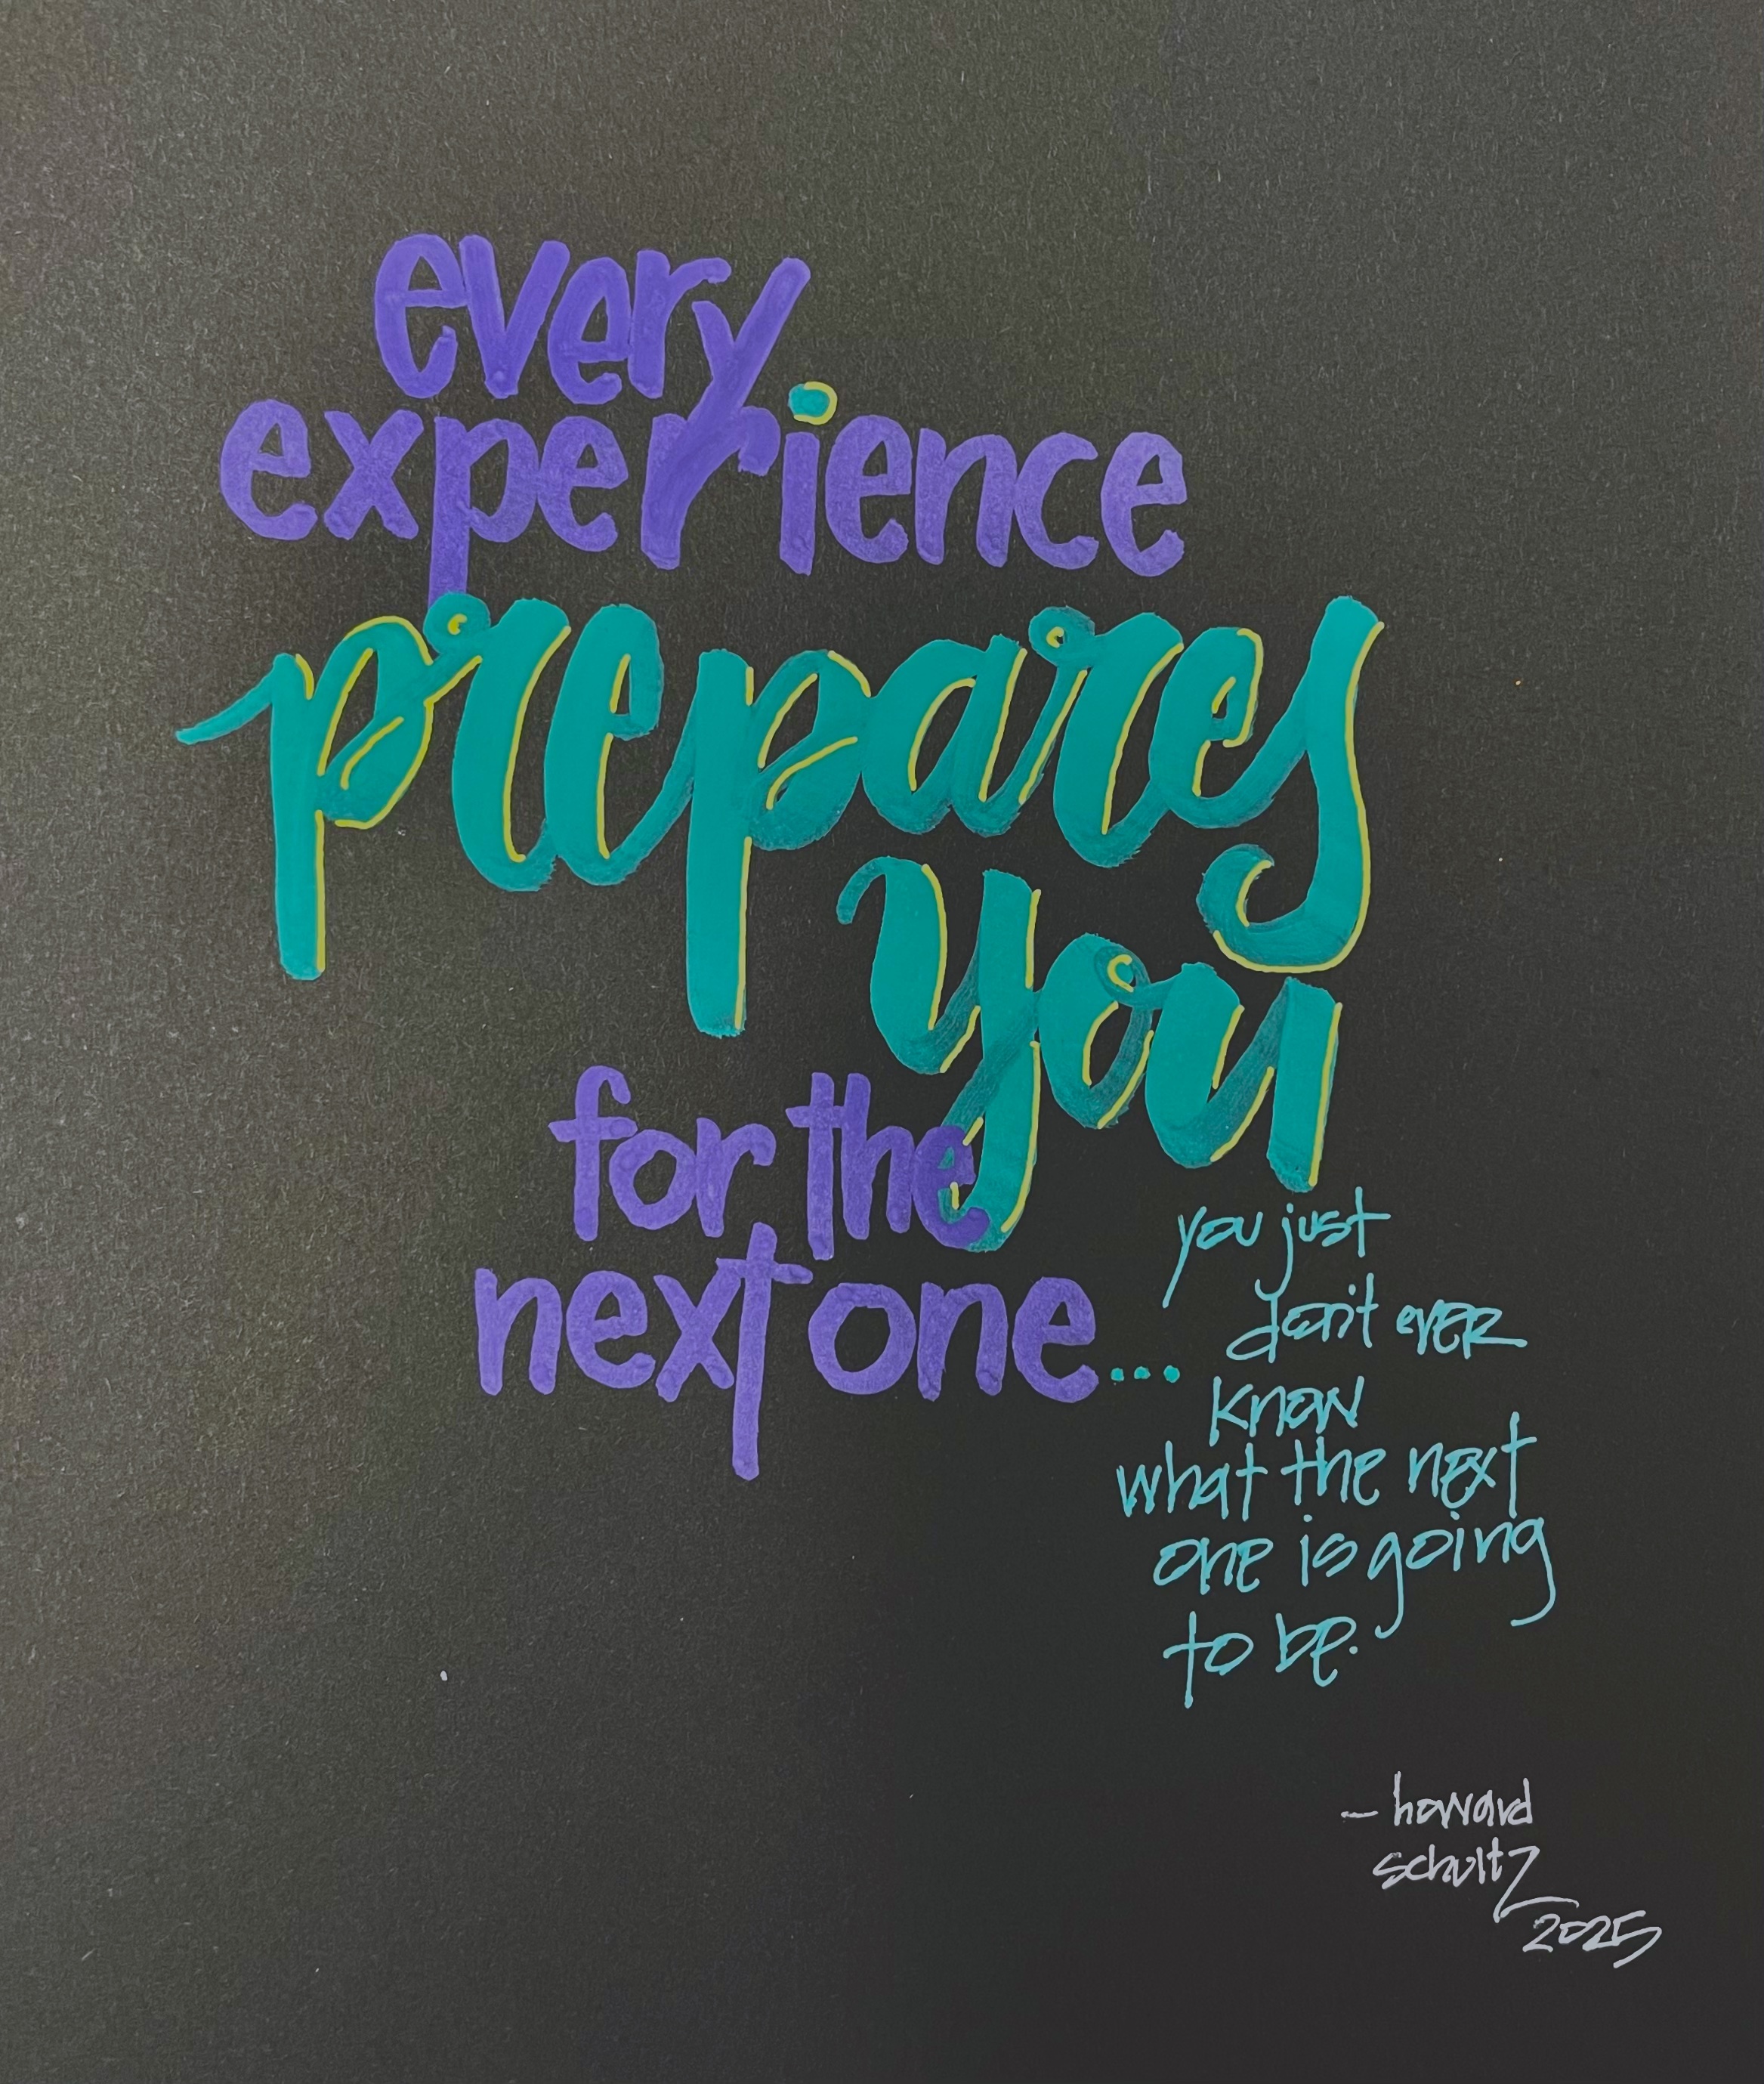 every
experience
prepares
you
for the
next one...
you just
don't ever
know
what the next
one is going
to be.
- howard
schultz
2025